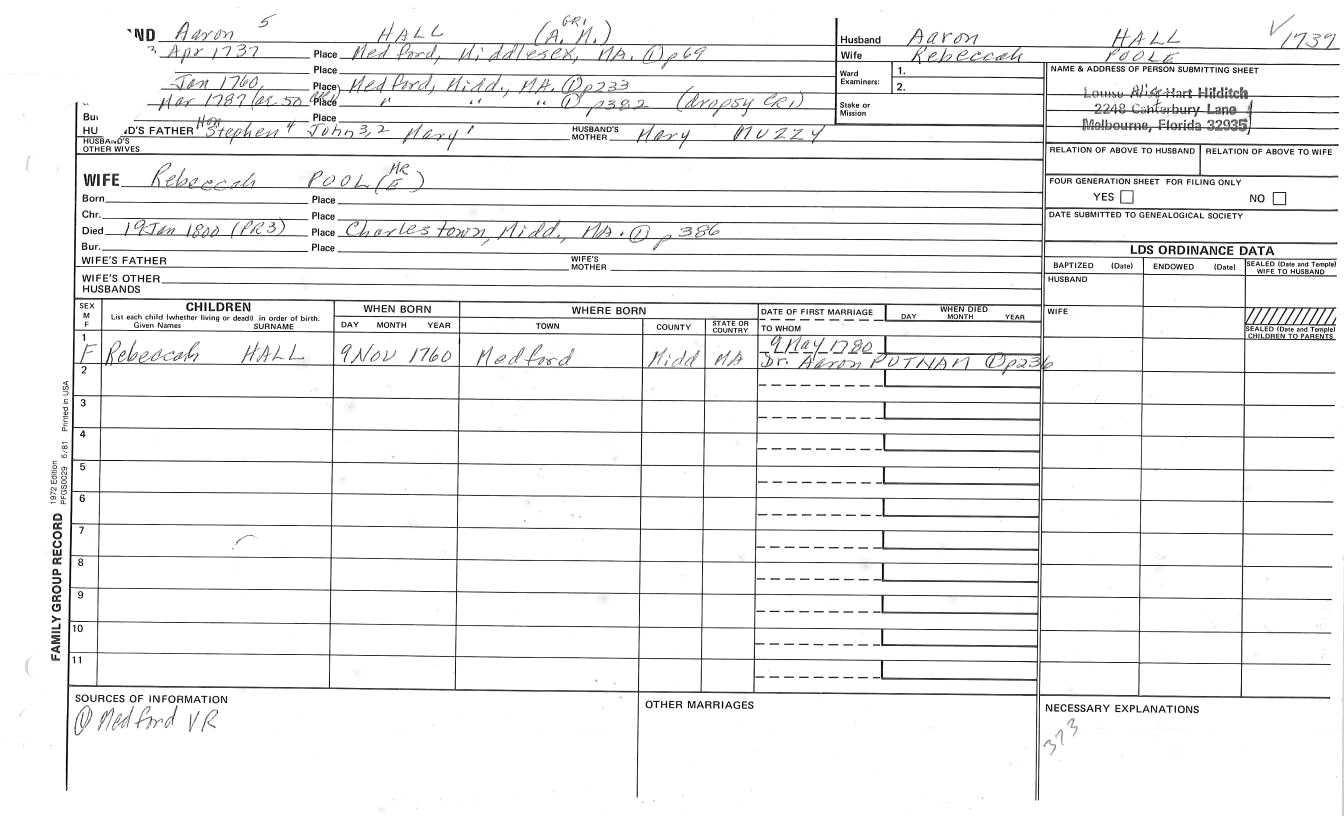 ND Aaron 5 HALL (A. M.) GR1
Apr 1737 Place Medford, Middlesex, MA. ① p69
Place
Jan 1760, Place Medford, Midd., MA. ① p233
Mar 1787 (ae. 50 Place " " " ① p382 (dropsy CR1)
Bu
HU D'S FATHER Hon Stephen 4 John 3,2 Mary 1 HUSBAND'S MOTHER Mary MUZZY
HUSBAND'S OTHER WIVES
Husband Aaron HALL √ 1737
Wife Rebeccah POOLE
Ward Examiners: 1.
2.
Stake or Mission
NAME & ADDRESS OF PERSON SUBMITTING SHEET
Louise Alice Hart Hilditch
2248 Canterbury Lane
Melbourne, Florida 32935
RELATION OF ABOVE TO HUSBAND RELATION OF ABOVE TO WIFE
FOUR GENERATION SHEET FOR FILING ONLY
YES NO
DATE SUBMITTED TO GENEALOGICAL SOCIETY
WIFE Rebeccah POOL(E) MR
Born Place
Chr. Place
Died 19 Jan 1800 (PR3) Place Charlestown, Midd., MA. ① p386
Bur. Place
WIFE'S FATHER WIFE'S MOTHER
WIFE'S OTHER HUSBANDS
LDS ORDINANCE DATA
BAPTIZED (Date) ENDOWED (Date) SEALED (Date and Temple) WIFE TO HUSBAND
HUSBAND
WIFE
SEALED (Date and Temple) CHILDREN TO PARENTS
SEX M F
CHILDREN
List each child (whether living or dead) in order of birth.
Given Names SURNAME
WHEN BORN
DAY MONTH YEAR
WHERE BORN
TOWN COUNTY STATE OR COUNTRY
DATE OF FIRST MARRIAGE
TO WHOM
WHEN DIED
DAY MONTH YEAR
1 9 May 1780
F Rebeccah HALL 9 Nov 1760 Medford Midd MA Dr. Aaron PUTNAM ① p236
2
3
4
5
6
7
8
9
10
11
FAMILY GROUP RECORD
1972 Edition
PFGS0029 6/81 Printed in USA
SOURCES OF INFORMATION
① Medford VR
OTHER MARRIAGES
NECESSARY EXPLANATIONS
373